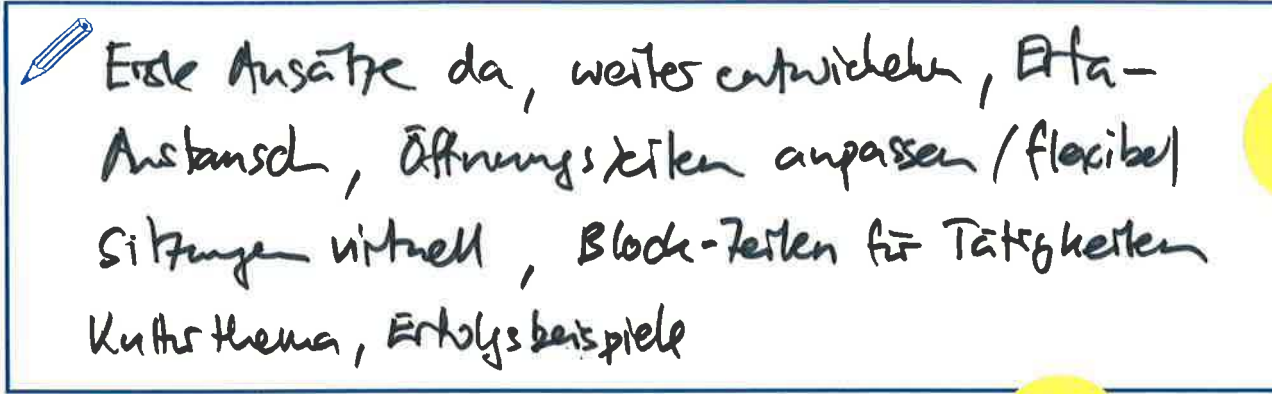 Erste Ansätze da, weiter entwickeln, Erfa-
Austausch, Öffnungszeiten anpassen / flexibel
Sitzungen virtuell, Block-Zeiten für Tätigkeiten
Kulturthema, Erfolgsbeispiele